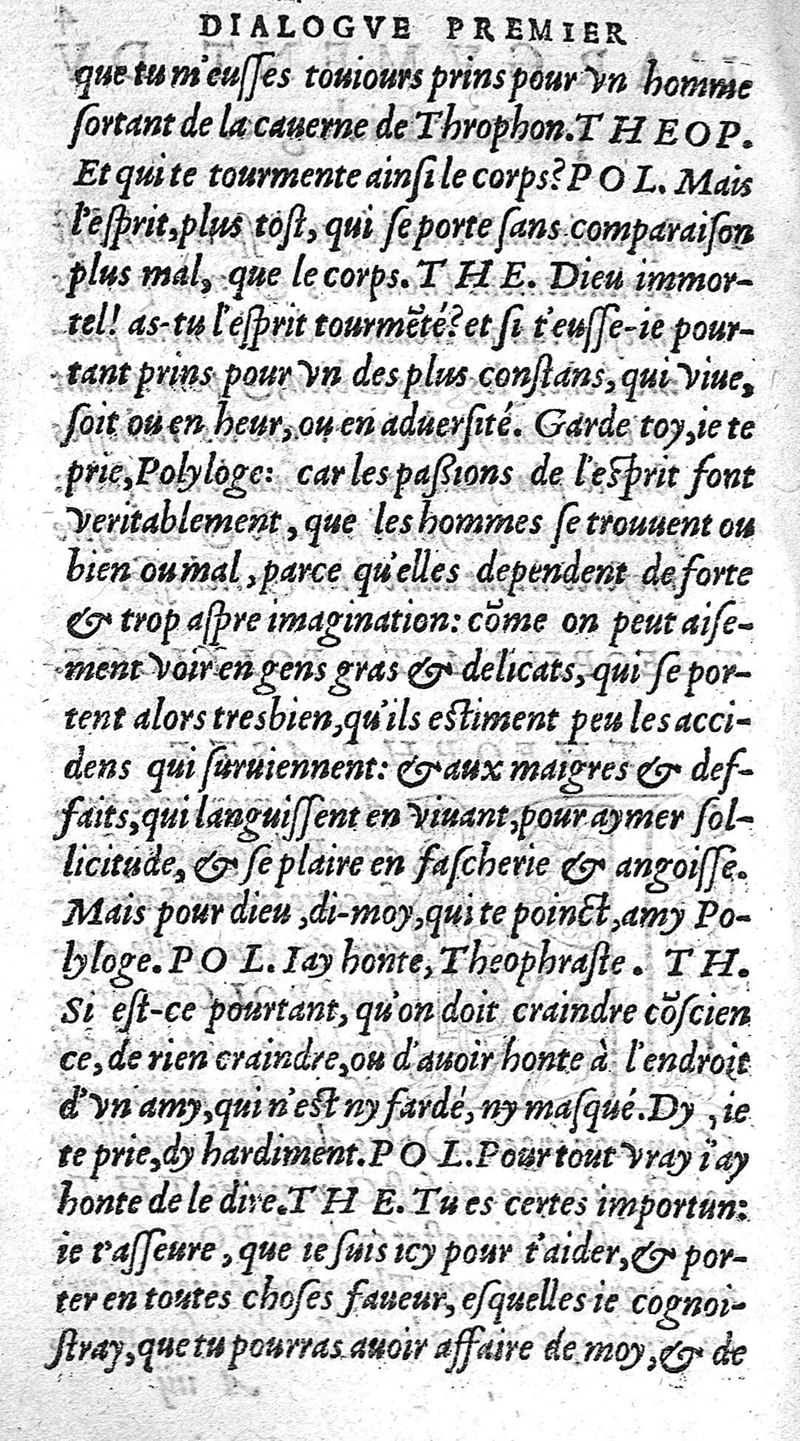 DIALOGVE PREMIER
que tu m'euſſes touiours prins pour vn homme
ſortant de la cauerne de Throphon. THEOP.
Et qui te tourmente ainſi le corps? POL. Mais
l'eſprit, plus toſt, qui ſe porte ſans comparaiſon
plus mal, que le corps. THE. Dieu immor-
tel! as-tu l'eſprit tourmẽté? et ſi t'euſſe-ie pour-
tant prins pour vn des plus conſtans, qui viue,
ſoit ou en heur, ou en aduerſité. Garde toy, ie te
prie, Polyloge: car les paſsions de l'eſprit font
veritablement, que les hommes ſe trouuent ou
bien ou mal, parce qu'elles dependent de forte
& trop aſpre imagination: cõme on peut aiſe-
ment voir en gens gras & delicats, qui ſe por-
tent alors tresbien, qu'ils eſtiment peu les acci-
dens qui ſuruiennent: & aux maigres & def-
faits, qui languiſſent en viuant, pour aymer ſol-
licitude, & ſe plaire en faſcherie & angoiſſe.
Mais pour dieu, di-moy, qui te poinct, amy Po-
lyloge. POL. Iay honte, Theophraſte. TH.
Si eſt-ce pourtant, qu'on doit craindre cõſcien
ce, de rien craindre, ou d'auoir honte à l'endroit
d'vn amy, qui n'eſt ny fardé, ny maſqué. Dy, ie
te prie, dy hardiment. POL. Pour tout vray i'ay
honte de le dire. THE. Tu es certes importun:
ie t'aſſeure, que ie ſuis icy pour t'aider, & por-
ter en toutes choſes faueur, eſquelles ie cognoi-
ſtray, que tu pourras auoir affaire de moy, & de